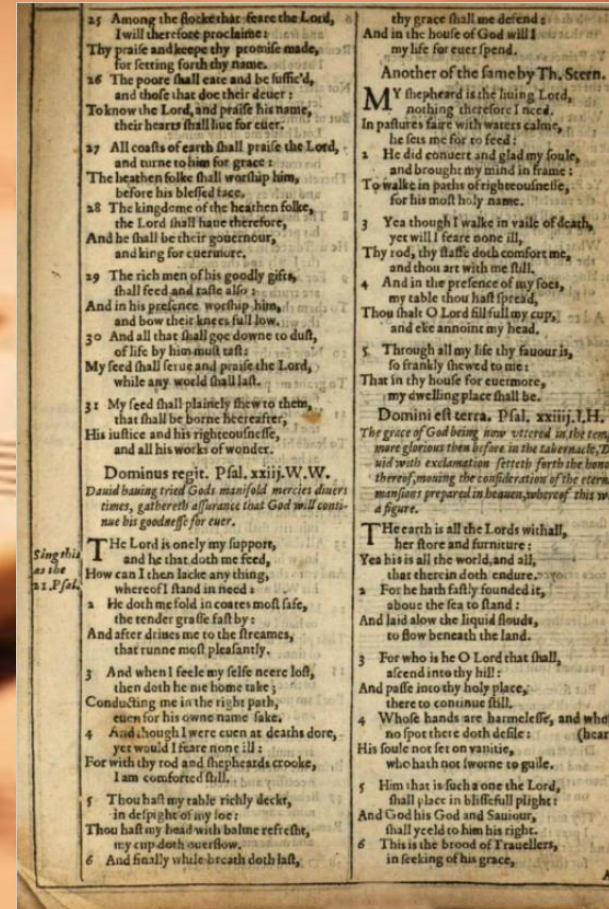 25 Among the flocke that feare the Lord,
I will therefore proclaime:
Thy praise and keepe thy promise made,
for setting forth thy name.
26 The poore shall eate and be suffic'd,
and those that doe their deuer:
To know the Lord, and praise his name,
their hearts shall liue for euer.
27 All coasts of earth shall praise the Lord,
and turne to him for grace:
The heathen folke shall worship him,
before his blessed face.
28 The kingdome of the heathen folke,
the Lord shall haue therefore,
And he shall be their gouernour,
and king for euermore.
29 The rich men of his goodly gifts,
shall feed and taste also:
And in his presence worship him,
and bow their knees full low.
30 And all that shall goe downe to dust,
of life by him must tast:
My seed shall serue and praise the Lord,
while any world shall last.
31 My seed shall plainely shew to them,
that shall be borne hereafter,
His iustice and his righteousnesse,
and all his works of wonder.
Dominus regit. Psal. xxiij. W.W.
Dauid hauing tried Gods manifold mercies diuers
times, gathereth assurance that God will conti-
nue his goodnesse for euer.
Sing this
as the
21. Psal.
THe Lord is onely my support,
and he that doth me feed,
How can I then lacke any thing,
whereof I stand in need:
2 He doth me fold in coates most safe,
the tender grasse fast by:
And after driues me to the streames,
that runne most pleasantly.
3 And when I feele my selfe neere lost,
then doth he me home take;
Conducting me in the right path,
euen for his owne name sake.
4 And though I were euen at deaths dore,
yet would I feare none ill:
For with thy rod and shepheards crooke,
I am comforted still.
5 Thou hast my table richly deckt,
in despight of my foe:
Thou hast my head with balme refresht,
my cup doth ouerflow.
6 And finally while breath doth last,
thy grace shall me defend:
And in the house of God will I
my life for euer spend.
Another of the same by Th. Stern.
MY shepheard is the liuing Lord,
nothing therefore I need.
In pastures faire with waters calme,
he sets me for to feed:
2 He did conuert and glad my soule,
and brought my mind in frame:
To walke in paths of righteousnesse,
for his most holy name.
3 Yea though I walke in vaile of death,
yet will I feare none ill,
Thy rod, thy staffe doth comfort me,
and thou art with me still.
4 And in the presence of my foes,
my table thou hast spread,
Thou shalt O Lord fill full my cup,
and eke annoint my head.
5 Through all my life thy fauour is,
so frankly shewed to me:
That in thy house for euermore,
my dwelling place shall be.
Domini est terra. Psal. xxiiij. I.H.
The grace of God being now vttered in the tem
more glorious then before in the tabernacle, D
uid with exclamation setteth forth the hono
thereof, mouing the consideration of the etern
mansions prepared in heauen, whereof this w
a figure.
THe earth is all the Lords withall,
her store and furniture:
Yea his is all the world, and all,
that therein doth endure.
2 For he hath fastly founded it,
aboue the sea to stand:
And laid alow the liquid flouds,
to flow beneath the land.
3 For who is he O Lord that shall,
ascend into thy hill:
And passe into thy holy place,
there to continue still.
4 Whose hands are harmelesse, and who
no spot there doth defile: (hear
His soule not set on vanitie,
who hath not sworne to guile.
5 Him that is such a one the Lord,
shall place in blissefull plight:
And God his God and Sauiour,
shall yeeld to him his right.
6 This is the brood of Trauellers,
in seeking of his grace,